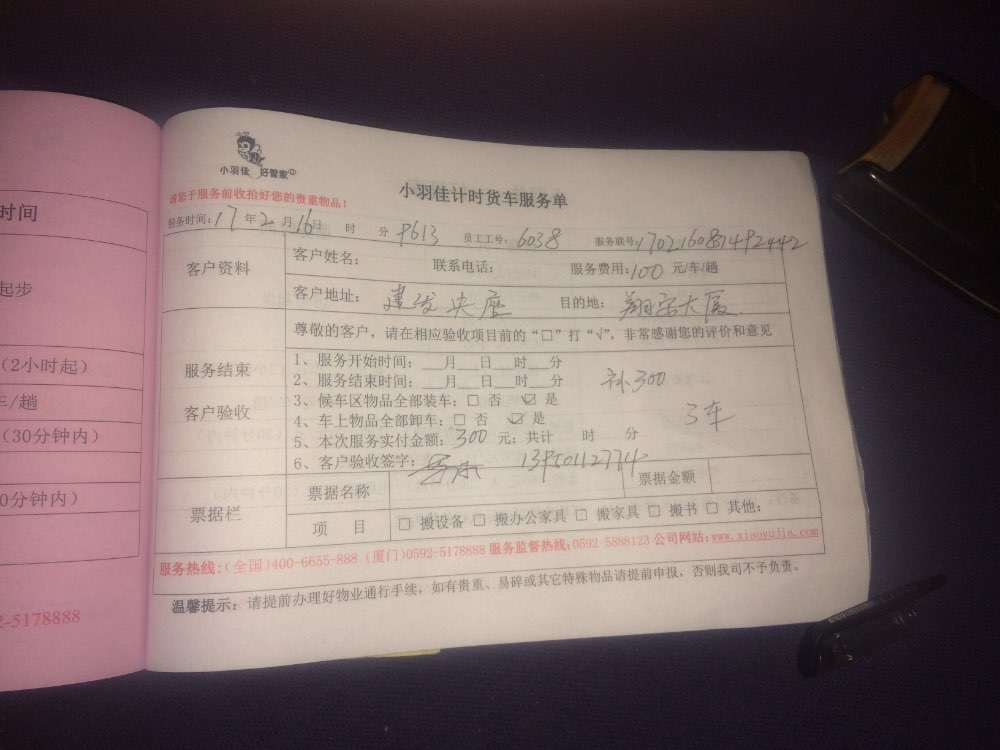 时间
起步
（2小时起）
/趟
（30分钟内）
0分钟内）
2-5178888
小羽佳 好管家
请您于服务前收拾好您的贵重物品！
小羽佳计时货车服务单
服务时间：17年2月16日 时 分 9613 员工工号：6038 服务联号：170216081492442
客户资料
客户姓名： 联系电话： 服务费用：100 元/车/趟
客户地址：建发央座 目的地：翔安大厦
服务结束
客户验收
尊敬的客户，请在相应验收项目前的“□”打“√”，非常感谢您的评价和意见
1、服务开始时间：__月__日__时__分
2、服务结束时间：__月__日__时__分 补300
3、候车区物品全部装车：□ 否 ☑ 是
4、车上物品全部卸车：□ 否 ☑ 是 3车
5、本次服务实付金额：300 元；共计 时 分
6、客户验收签字：
票据栏
票据名称 票据金额
项 目 □ 搬设备 □ 搬办公家具 □ 搬家具 □ 搬书 □ 其他：
服务热线：(全国)400-6655-888 (厦门)0592-5178888 服务监督热线：0592-5888123 公司网站：www.xiaoyujia.com
温馨提示：请提前办理好物业通行手续，如有贵重、易碎或其它特殊物品请提前申报，否则我司不予负责。